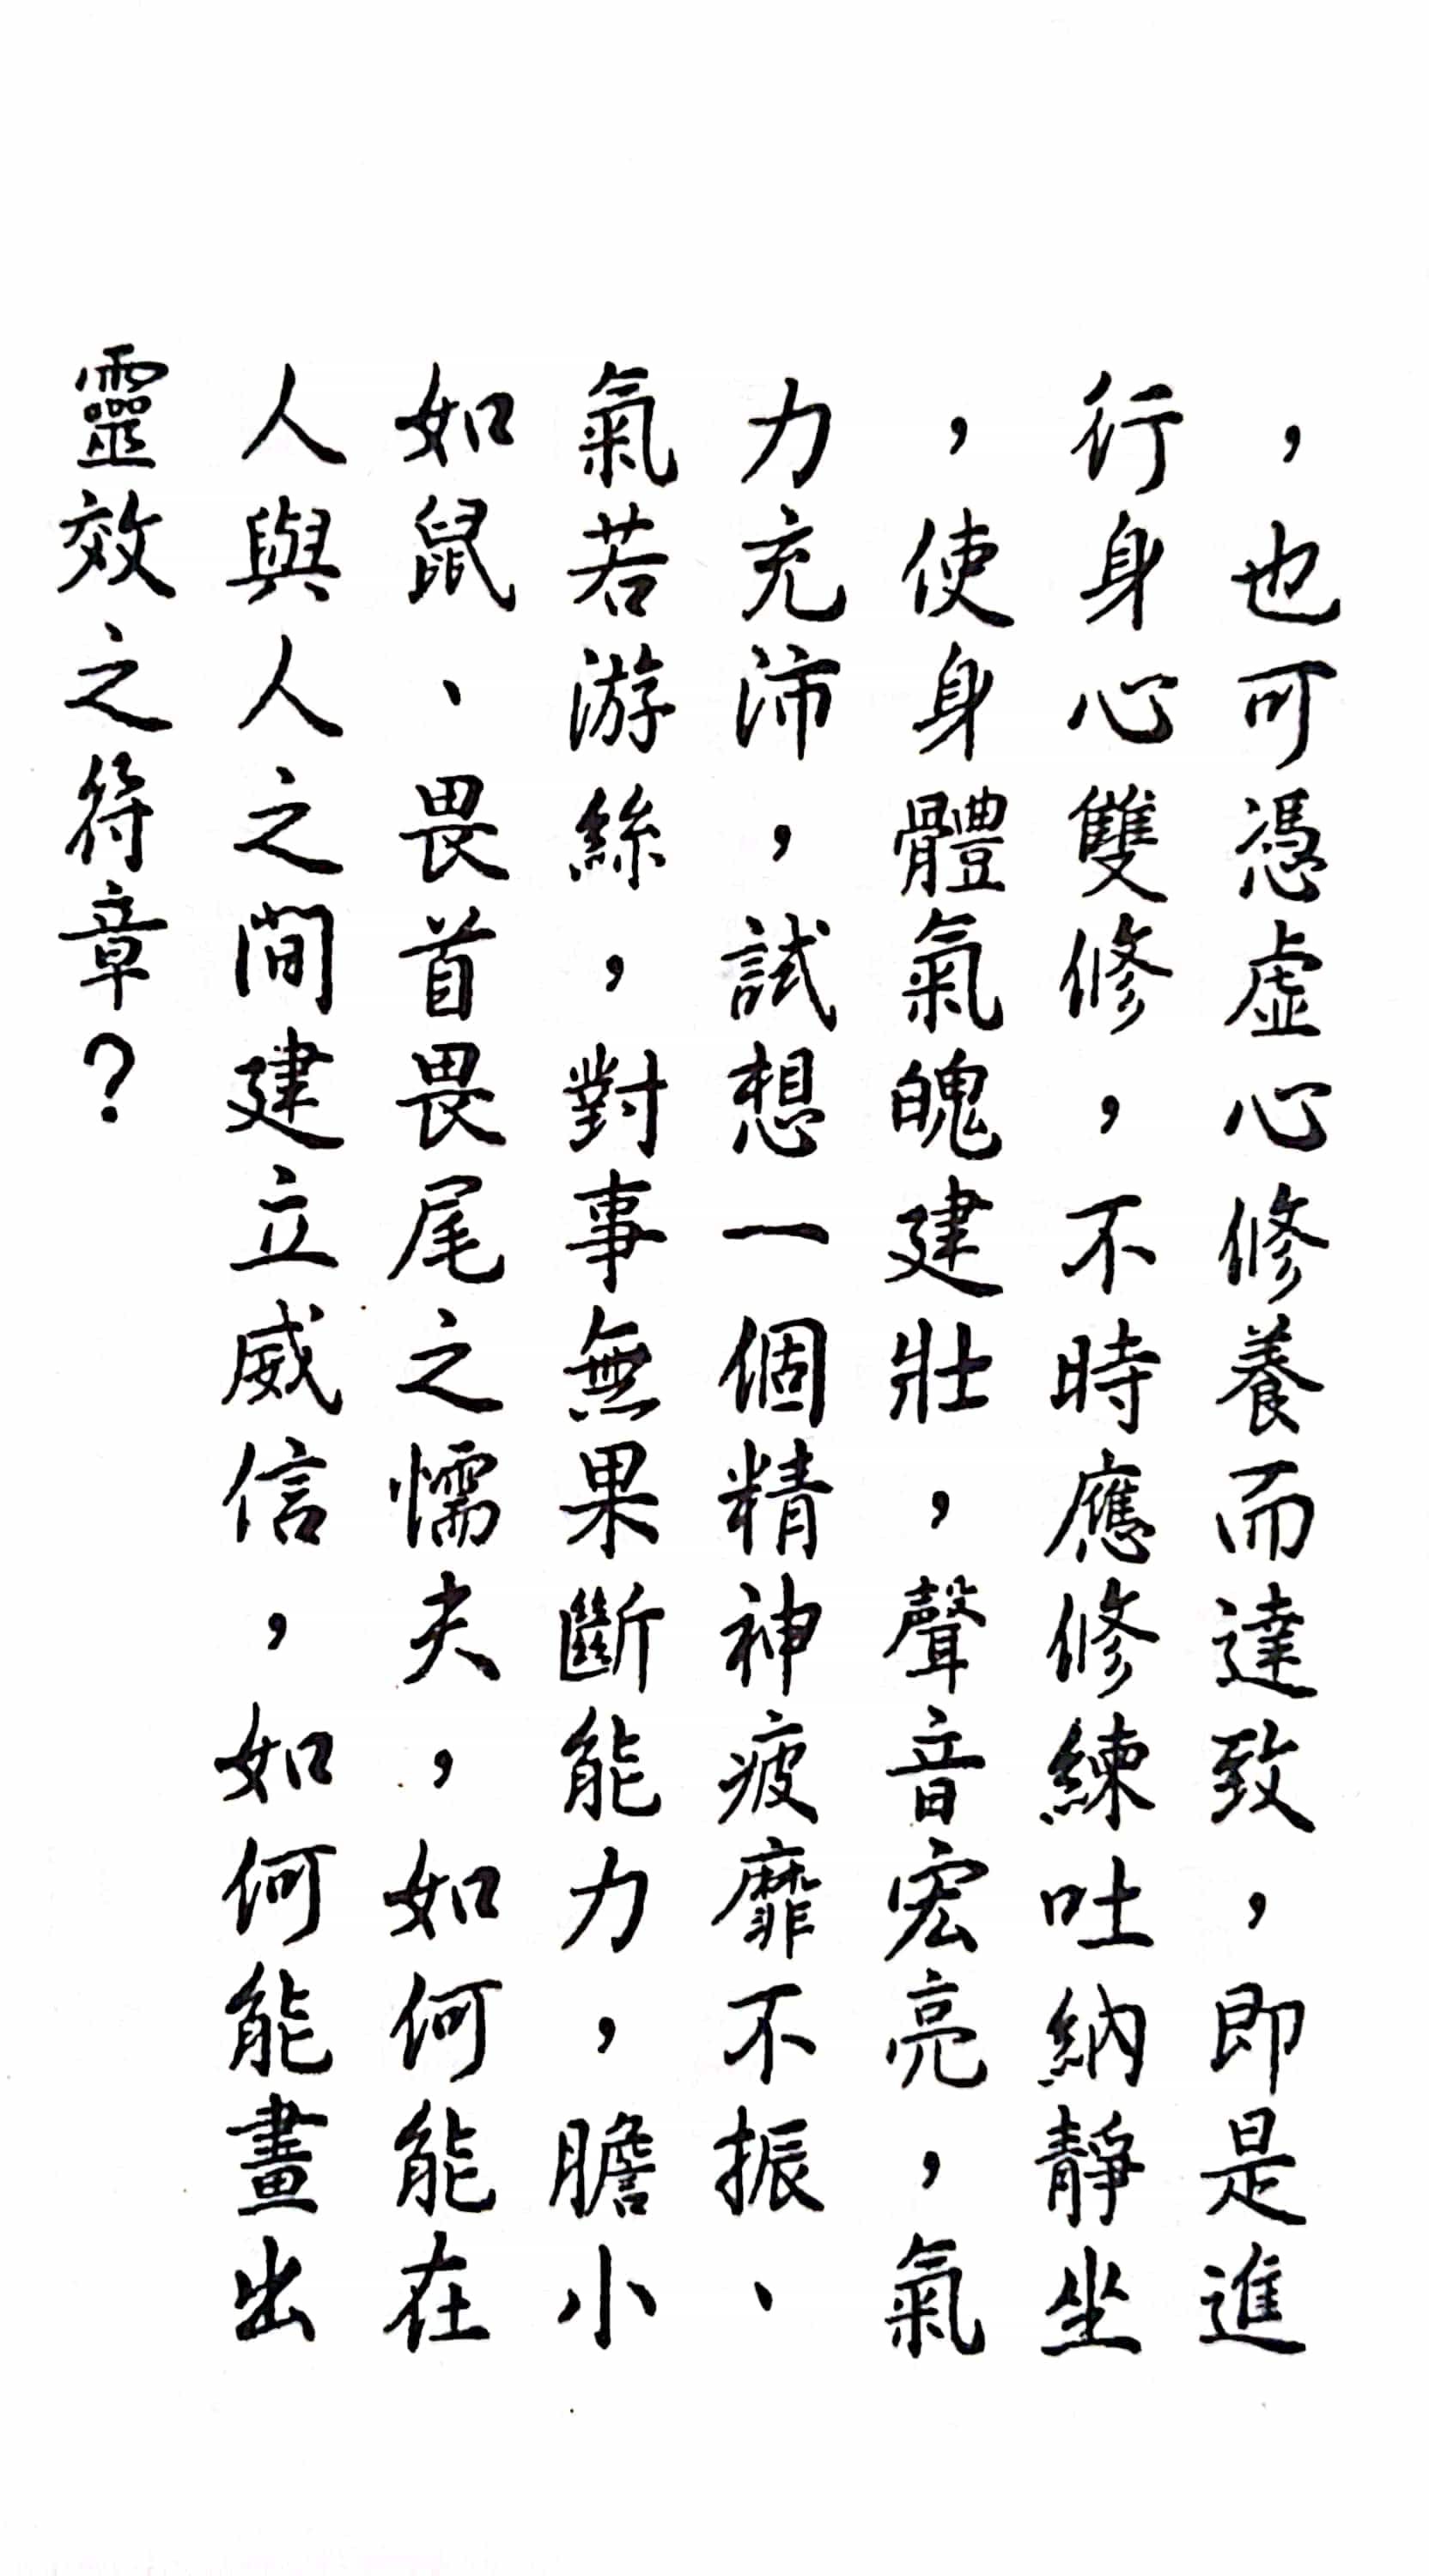 ，也可憑虛心修養而達致，即是進
行身心雙修，不時應修練吐納靜坐
，使身體氣魄建壯，聲音宏亮，氣
力充沛，試想一個精神疲靡不振、
氣若游絲，對事無果斷能力，膽小
如鼠、畏首畏尾之懦夫，如何能在
人與人之間建立威信，如何能畫出
靈效之符章？